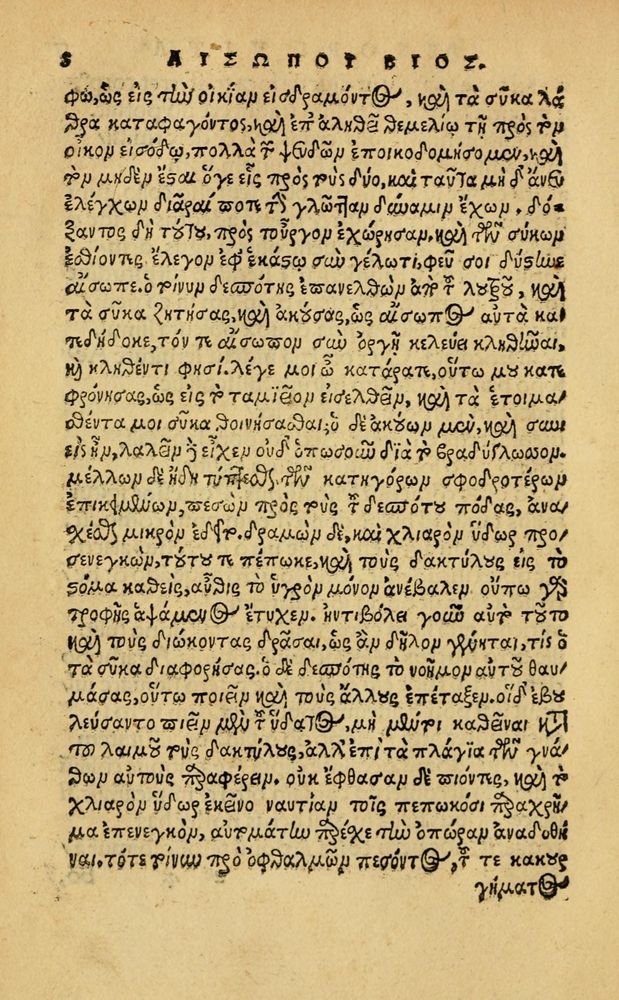 8 ΑΙΣΩΠΟΥ ΒΙΟΣ.
φῳ, ὡς εἰς τὴν οἰκίαν εἰσδραμόντος, καὶ τὰ σῦκα λά
θρα καταφαγόντος, καὶ ἐπ' ἀληθεῖ θεμελίῳ τῇ πρὸς τὸν
οἶκον εἰσόδῳ, πολλὰ τῶν ψευδῶν ἐποικοδομήσομεν, καὶ
τὸν μηδὲν ἔσται ὅγε εἷς πρὸς τοὺς δύο, καὶ ταῦτα μηδ' ἄνευ
ἐλέγχων διᾶραί ποτε τὴν γλῶτταν δύναμιν ἔχων. δό
ξαντος δὴ τούτου, πρὸς τοὖργον ἐχώρησαν, καὶ τῶν σύκων
ἐσθίοντες ἔλεγον ἐφ' ἑκάστῳ σὺν γέλωτι, φεῦ σοι δύστηνε
αἴσωπε. ὁ τοίνυν δεσπότης ἐπανελθὼν ἀπὸ τοῦ λουτροῦ, καὶ
τὰ σῦκα ζητήσας, καὶ ἀκούσας, ὡς αἴσωπος αὐτὰ κα
τεδήδοκε, τόν τε αἴσωπον σὺν ὀργῇ κελεύει κληθῆναι,
καὶ κληθέντι φησί. λέγε μοι ὦ κατάρατε, οὕτω μου κατε
φρόνησας, ὡς εἰς τὸ ταμιεῖον εἰσελθεῖν, καὶ τὰ ἑτοιμα
σθέντα μοι σῦκα θοινήσασθαι; ὁ δὲ ἀκούων μὲν, καὶ συνι
εὶς ἦν, λαλεῖν δὲ εἶχεν οὐδ' ὁπωσοῦν διὰ τὸ βραδύγλωσσον.
μέλλων δὲ ἤδη τύπτεσθαι τῶν κατηγόρων σφοδροτέρων
ἐπικειμένων, πεσὼν πρὸς τοὺς τοῦ δεσπότου πόδας, ἀνα
σχέσθαι μικρὸν ἐδεῖτο. δραμὼν δὲ, καὶ χλιαρὸν ὕδωρ προ
σενεγκὼν, τοῦτό τε πέπωκε, καὶ τοὺς δακτύλους εἰς τὸ
στόμα καθεὶς, αὖθις τὸ ὑγρὸν μόνον ἀνέβαλεν οὔπω γὰρ
τροφῆς ἁψάμενος ἔτυχεν. ἠντιβόλει γοῦν αὐτὸ τοῦτο
καὶ τοὺς διώκοντας δρᾶσαι, ὡς ἂν δῆλον γένηται, τίς ὁ
τὰ σῦκα διαφορήσας. ὁ δὲ δεσπότης τὸ νοῆμον αὐτοῦ θαυ
μάσας, οὕτω ποιεῖν καὶ τοὺς ἄλλους ἐπέταξεν. οἱ δ' ἐβου
λεύσαντο πιεῖν μὲν τοῦ ὕδατος, μὴ μέντοι καθεῖναι κατὰ
τοῦ λαιμοῦ τοὺς δακτύλους, ἀλλ' ἐπὶ τὰ πλάγια τῶν γνά
θων αὐτοὺς παραφέρειν. οὐκ ἔφθασαν δὲ πιόντες, καὶ τὸ
χλιαρὸν ὕδωρ ἐκεῖνο ναυτίαν τοῖς πεπωκόσι παραχρῆ
μα ἐπενεγκὸν, αὐτομάτως παρέσχε τὴν ὀπώραν ἀναδοθῆ
ναι. τότε τοίνυν πρὸ ὀφθαλμῶν πεσόντος, τοῦ τε κακουρ
γήματος